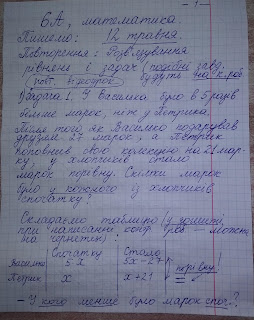 - 1 -
6А, математика
Пишемо: 12 травня
Повторення: Розв'язування
рівнянь і задач (подібні завд.
будуть на к.роб
1) Задача 1. У Василька було в 5 разів
більше марок, ніж у Петрика.
Після того як Василько подарував
друзям 27 марок, а Петрик
поповнив свою колекцію на 21 мар-
ку, у хлопчиків стало
марок порівну. Скільки марок
було у кожного із хлопчиків
спочатку?
Складаємо таблицю (у зошиті,
при написанні контр роб — можна
на чернетці):
Спочатку Стало
Василько 5x 5x-27
порівну!
Петрик x x+21
- У кого менше було марок споч.?